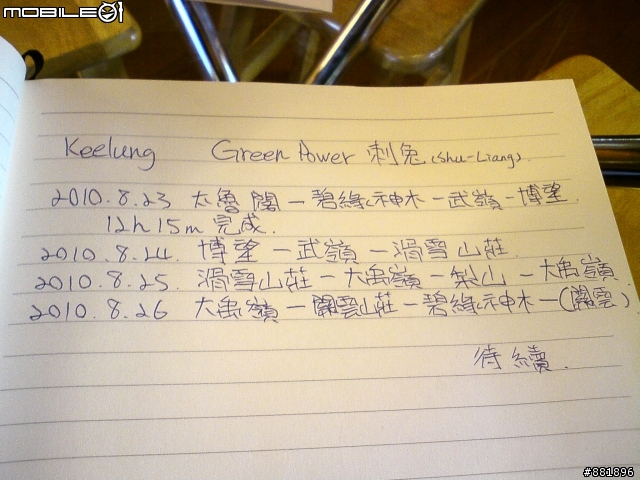 MOBILE01
Keelung Green Power 刺兔 (Shu-Liang).
2010.8.23 太魯閣－碧綠神木－武嶺－博望
12h 15m 完成.
2010.8.24. 博望－武嶺－滑雪山莊
2010.8.25. 滑雪山莊－大禹嶺－梨山－大禹嶺
2010.8.26 大禹嶺－關雲山莊－碧綠神木－(關雲)
待續.
#881896